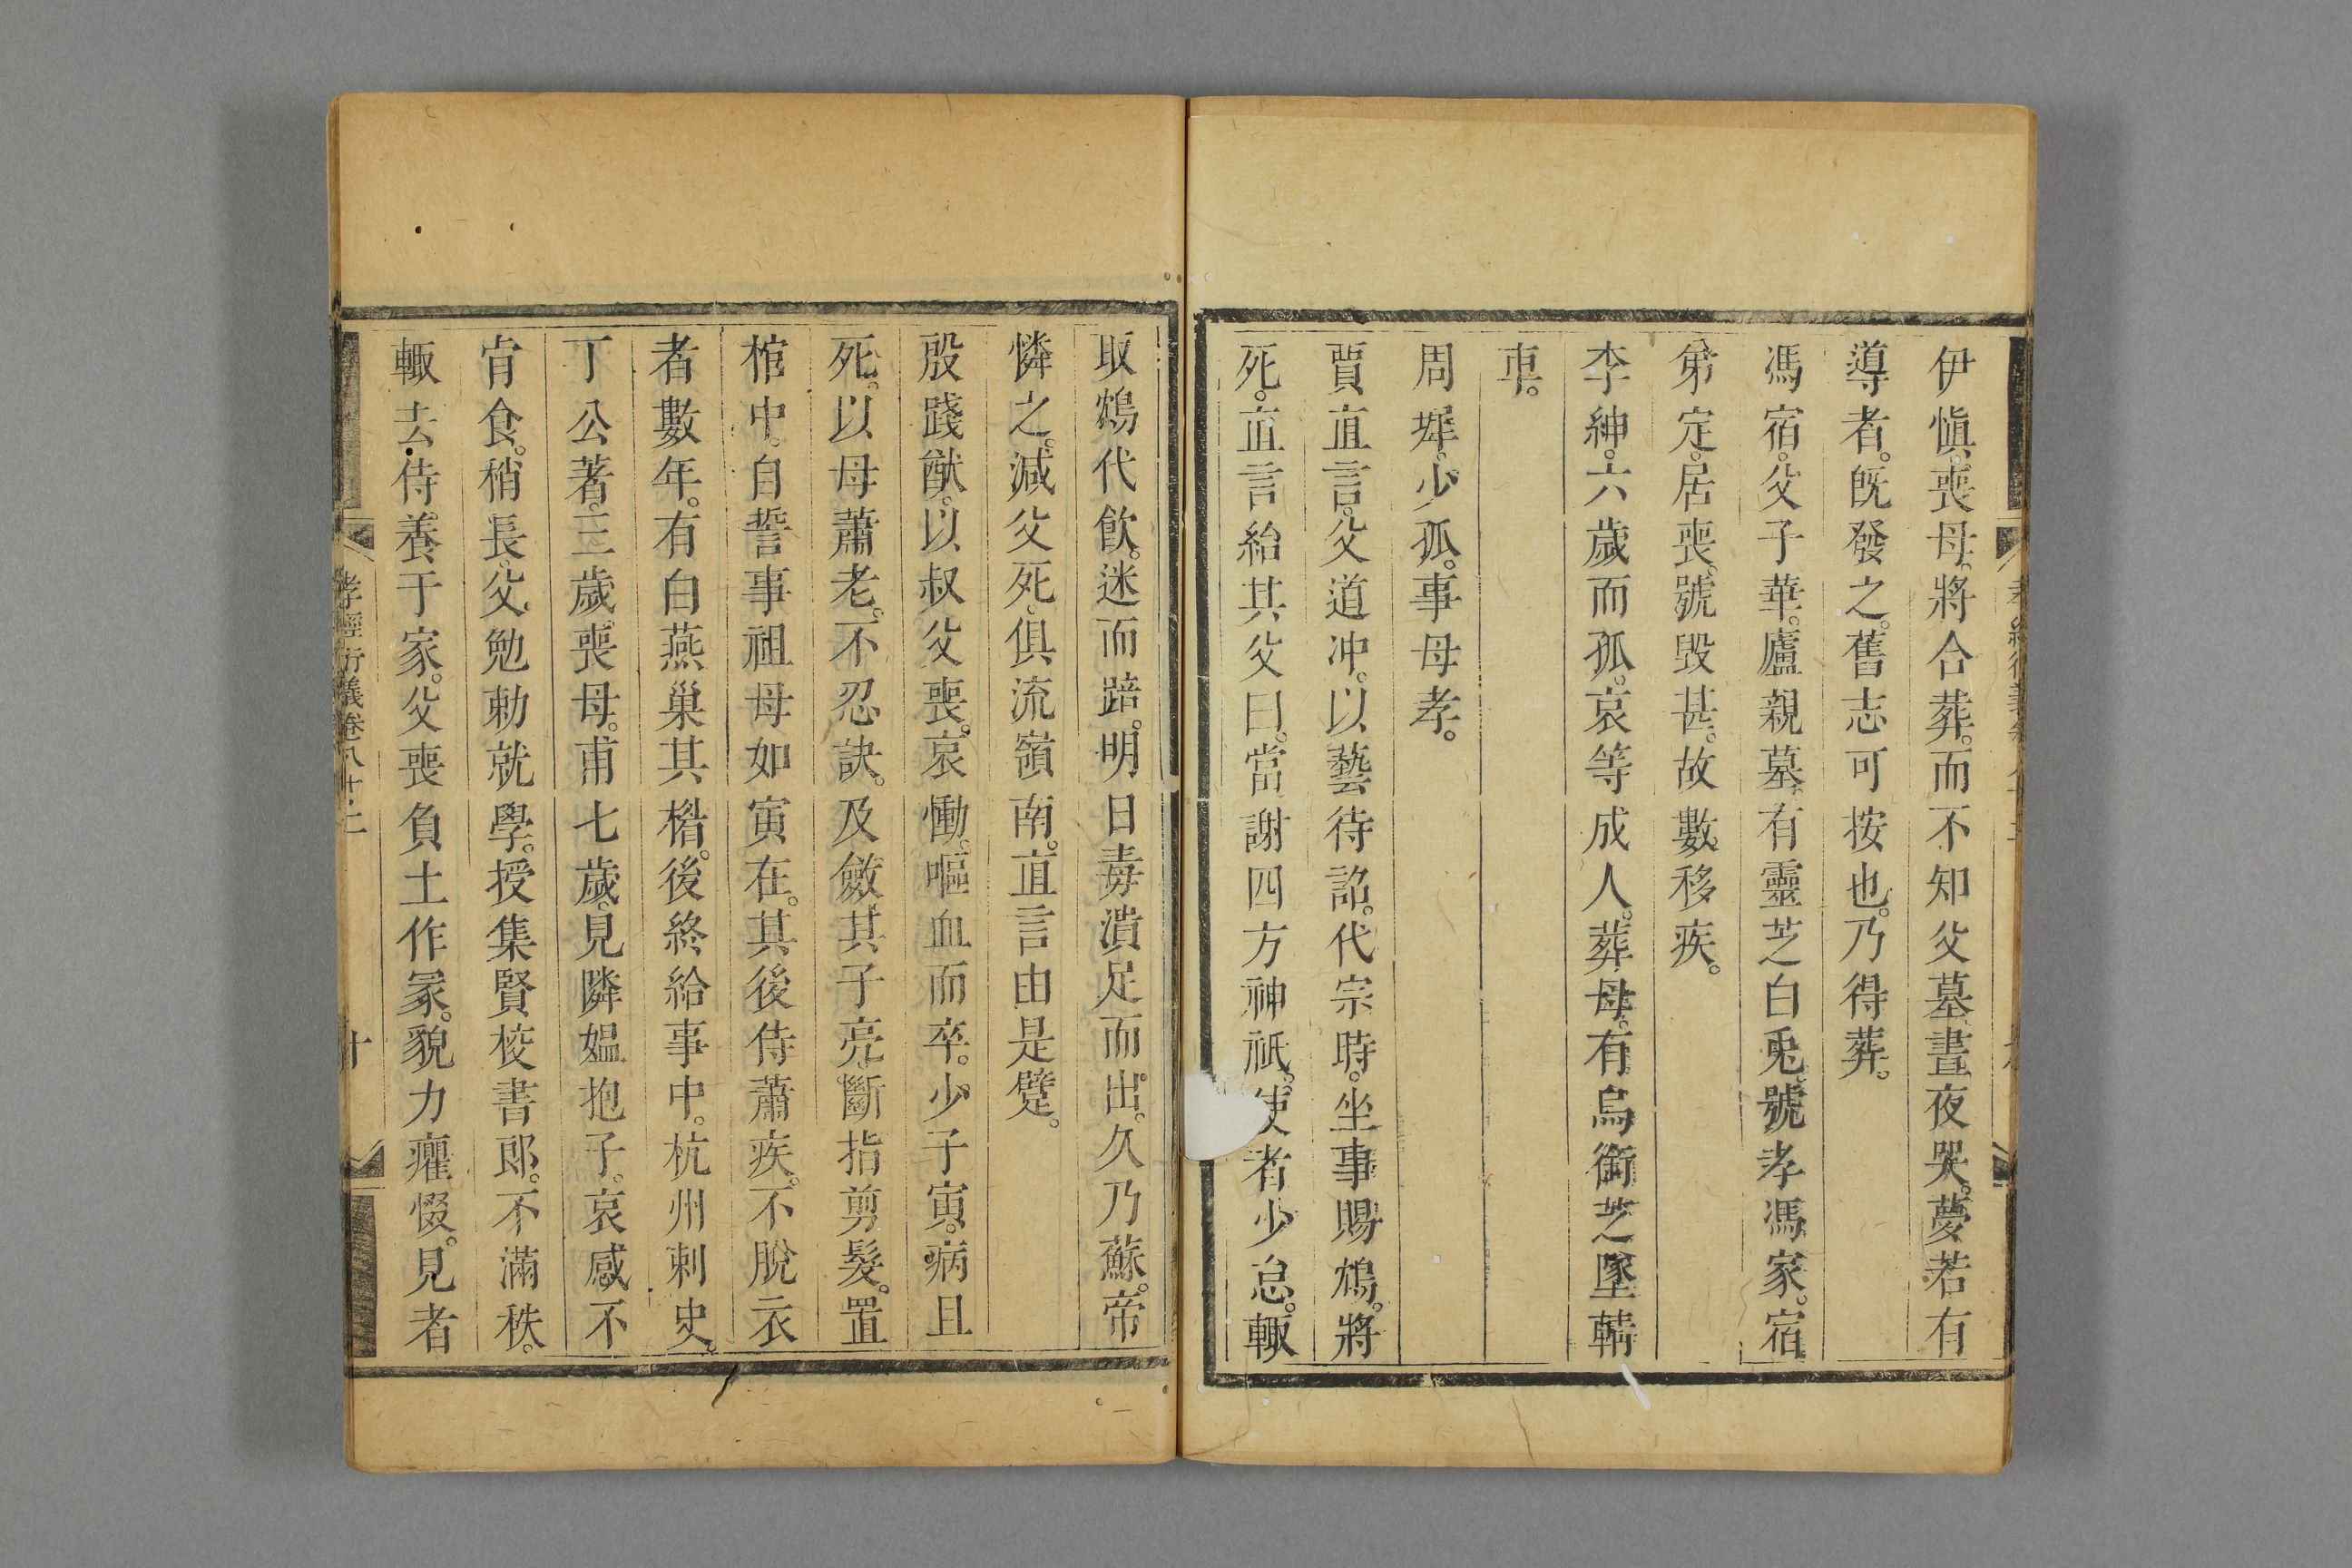 伊愼。喪母。將合葬。而不知父墓。晝夜哭。夢若有
導者。旣發之。舊志可按也。乃得葬。
馮宿。父子華。廬親墓。有靈芝白兎。號孝馮家。宿
弟定。居喪。號毀甚。故數移疾。
李紳。六歲而孤。哀等成人。葬母。有烏銜芝墜輤
車。
周墀。少孤。事母孝。
賈直言。父道冲。以藝待詔。代宗時。坐事賜鴆。將
死。直言紿其父曰。當謝四方神祇。使者少怠。輙
取鴆代飮。迷而踣。明日毒潰足而出。久乃蘇。帝
憐之。減父死。俱流嶺南。直言由是躄。
殷踐猷。以叔父喪。哀慟。嘔血而卒。少子寅。病且
死。以母蕭老。不忍訣。及斂。其子亮。斷指剪髮。置
棺中。自誓事祖母如寅在。其後侍蕭疾。不脫衣
者數年。有白燕巢其楷。後終給事中。杭州刺史。
丁公著。三歲。喪母。甫七歲。見隣媼抱子。哀感不
肯食。稍長。父勉勅就學。授集賢校書郎。不滿秩。
輙去。侍養于家。父喪負土作冢。貌力癯惙。見者
孝經衍義卷八十二
十